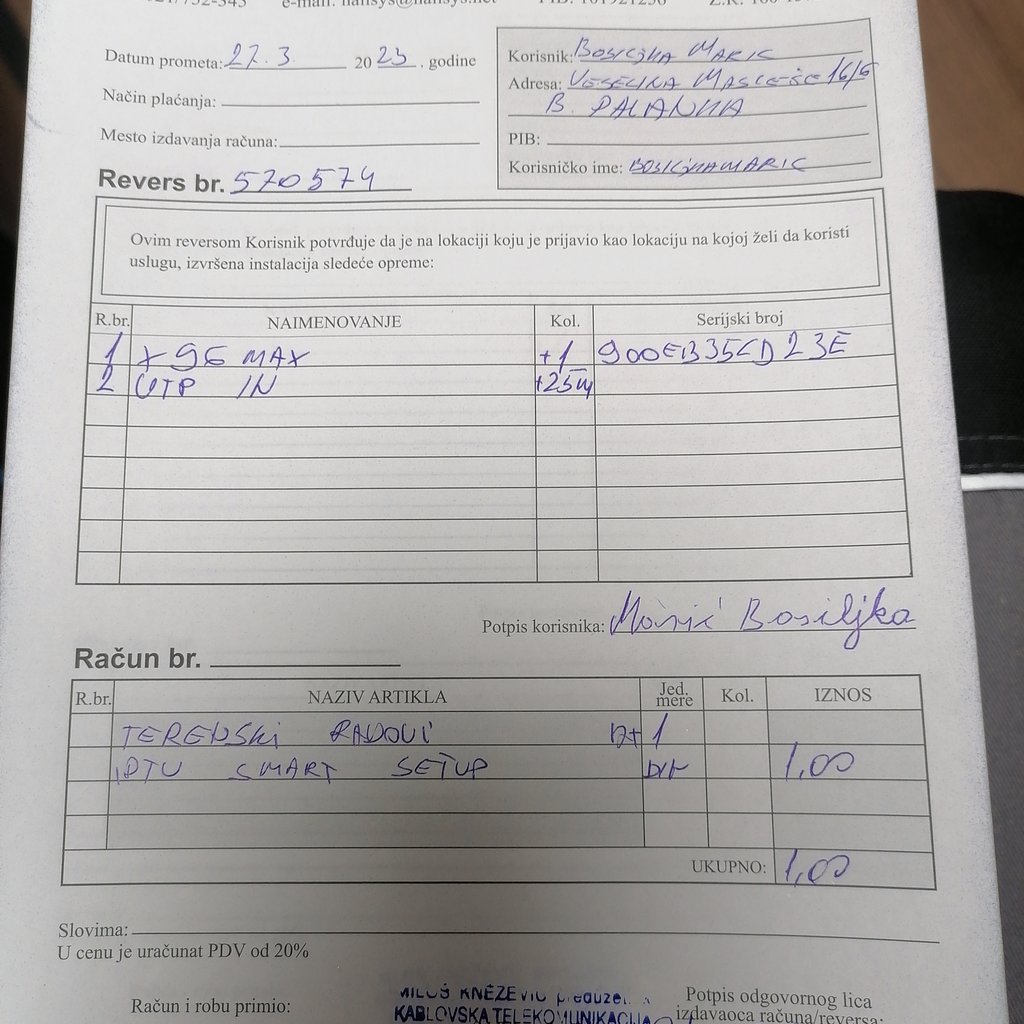 e-mail:
Datum prometa: 27.3 2023. godine
Način plaćanja:
Mesto izdavanja računa:
Revers br. 570574
Korisnik: BOSILJKA MARIC
Adresa: VESELINA MASLEŠE 16/6
B. PALANKA
PIB:
Korisničko ime: BOSILJKAMARIC
Ovim reversom Korisnik potvrđuje da je na lokaciji koju je prijavio kao lokaciju na kojoj želi da koristi
uslugu, izvršena instalacija sledeće opreme:
R.br. NAIMENOVANJE Kol. Serijski broj
1 X96 MAX +1 900EB35CD23E
2 UTP IN +25m
Potpis korisnika: Marić Bosiljka
Račun br.
R.br. NAZIV ARTIKLA Jed. mere Kol. IZNOS
TERENSKI RADOVI 1
IPTV SMART SETUP 1,00
UKUPNO: 1,00
Slovima:
U cenu je uračunat PDV od 20%
Račun i robu primio:
MILOŠ KNEŽEVIĆ
KABLOVSKA TELEKOMUNIKACIJA
Potpis odgovornog lica
izdavaoca računa/reversa: